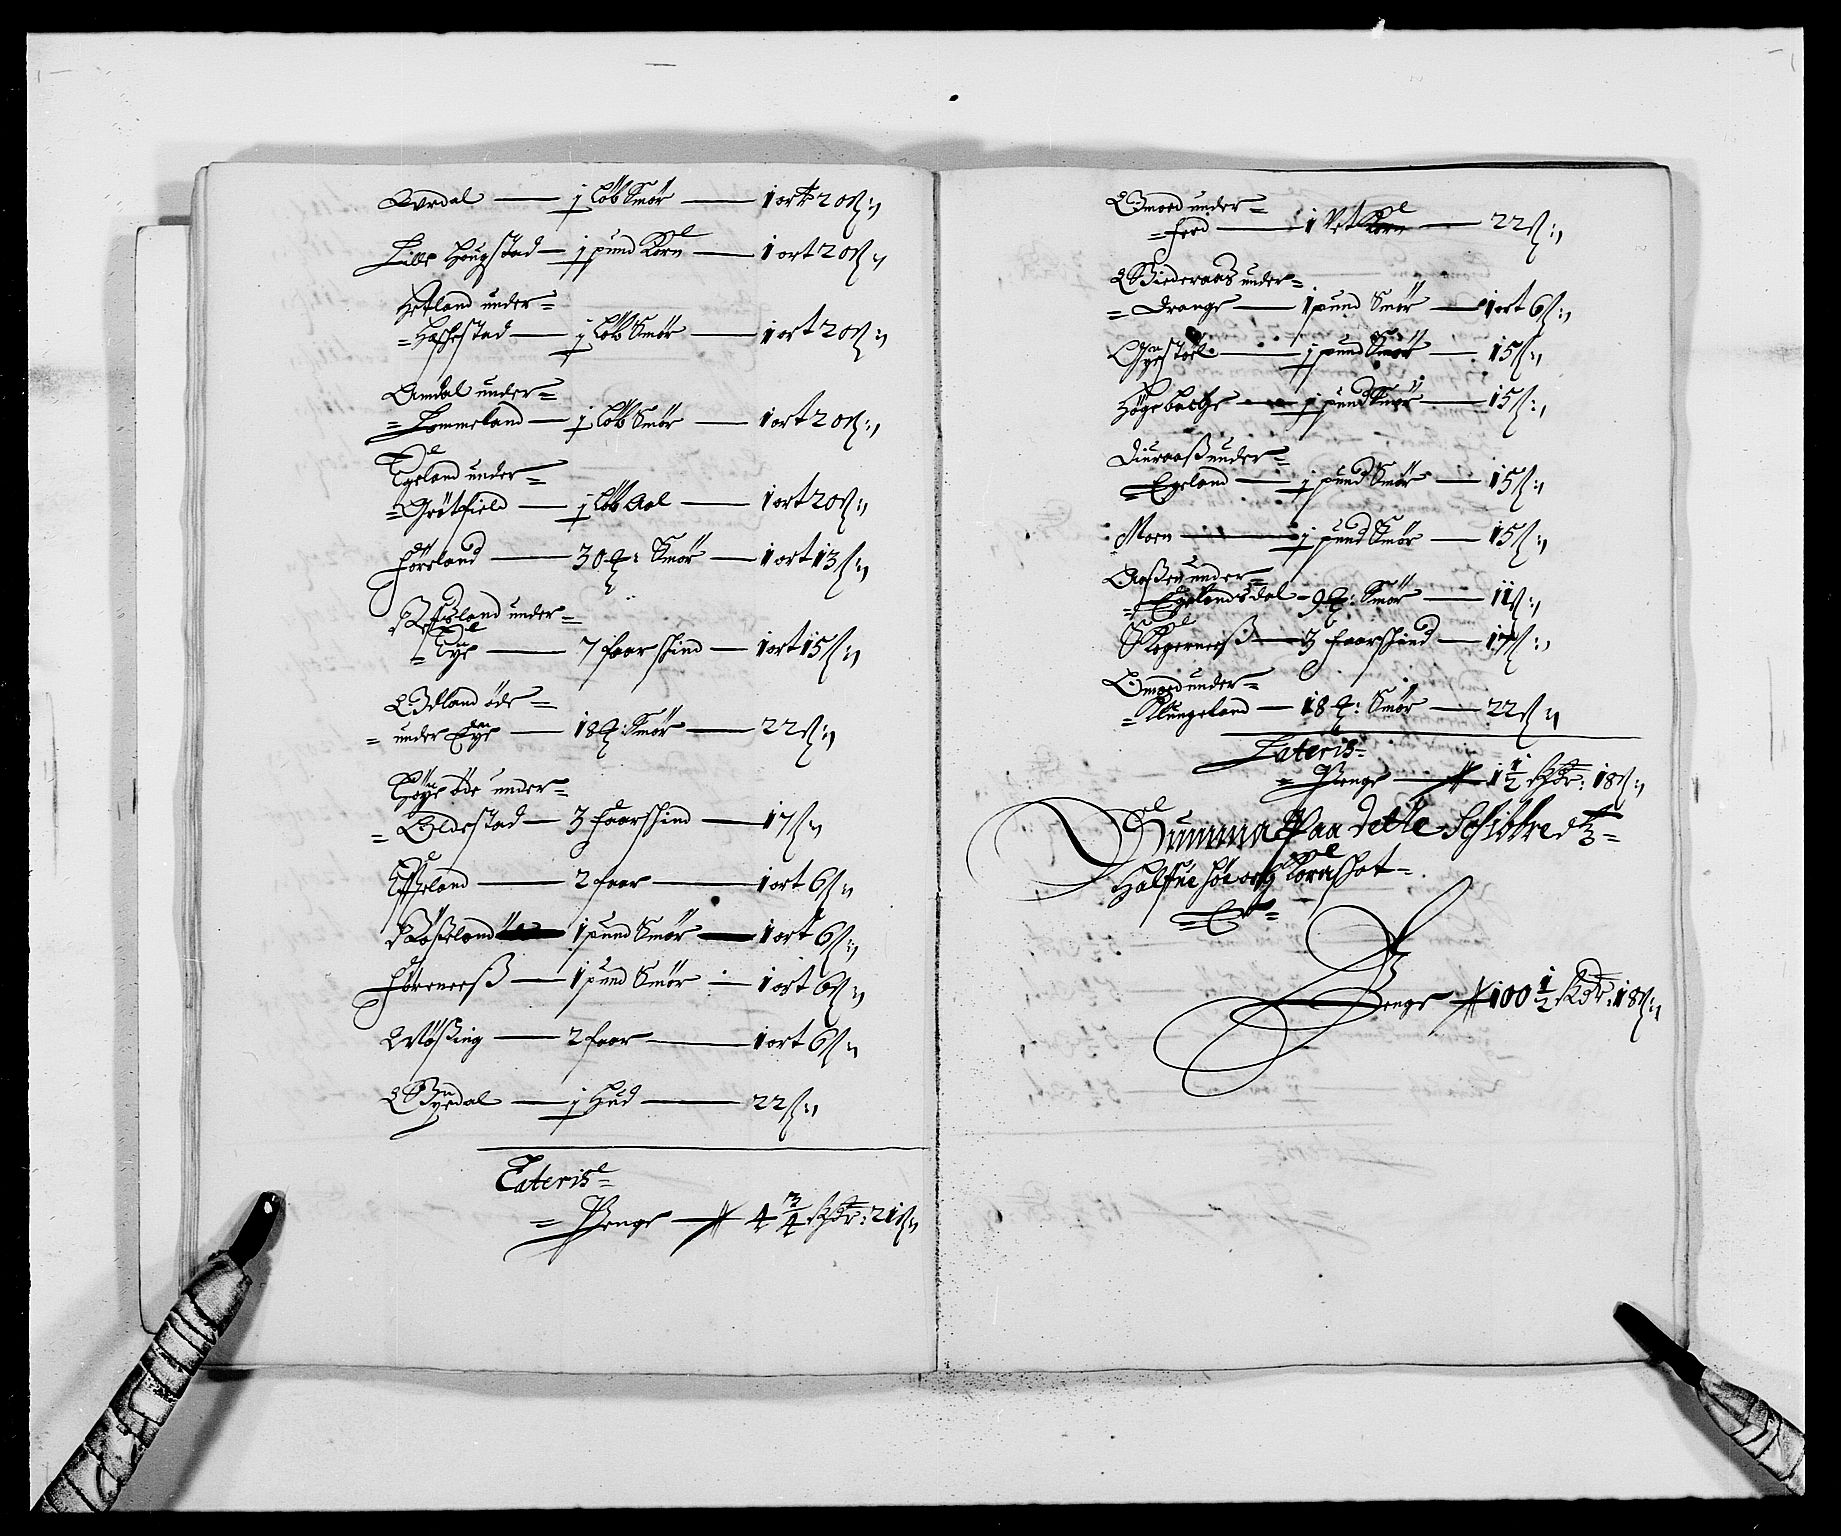 Ourdal — j Løb Smør — 1 ort 20 ß:,
Lille Hougstad — j pund Korn — 1 ort 20 ß:,
Hetland under =
= Haschestad — j Løb Smør — 1 ort 20 ß:,
Amdal under =
= Lommeland — j Løb Smør — 1 ort 20 ß:,
Egeland under =
= Grøtfield — j Løb Aal — 1 ort 20 ß:,
Føreland — 30 ℔: Smør — 1 ort 13 ß:,
Refsland under =
= Eye — 7 faarskind — 1 ort 15 ß:,
Ødland øde =
= under Eye — 18 ℔: Smør — 22 ß:,
Høye øde under =
= Oldestad — 3 faarskind — 17 ß:,
Eeseland — 2 faar — 1 ort 6 ß:,
Aaseland — 1 pund Smør — 1 ort 6 ß:,
Føreneesß — 1 pund Smør — 1 ort 6 ß:,
— 2 faar — 1 ort 6 ß:,
Øyedal — j Hud — 22 ß:,
Lateris =
= Penge — 4 3/4 Rdr: 21 ß:,
Omoed under =
= feed — 1 Vet Korn — 22 ß:,
Wideraas under =
= Drange — 1 pund Smør — 1 ort 6 ß:,
Gyestøel — j pund Smør — 15 ß:,
Høgebache — j pund Smør — 15 ß:,
Diuraasß under =
= Egeland — j pund Smør — 15 ß:,
Moen — j pund Smør — 15 ß:,
Aaßen under =
= Egelandsdal — 9 ℔: Smør — 11 ß:,
Skogerneesß — 3 faarskind — 17 ß:,
Omoed under =
= Klungeland — 18 ℔: Smør — 22 ß:,
Lateris =
= Penge — 1 1/2 Rdr: 18 ß:,
Summa Paa dette Schibbredtz =
Halfue høe och Kornskat =
= Er =
Penge — 100 1/2 Rdr: 18 ß:,